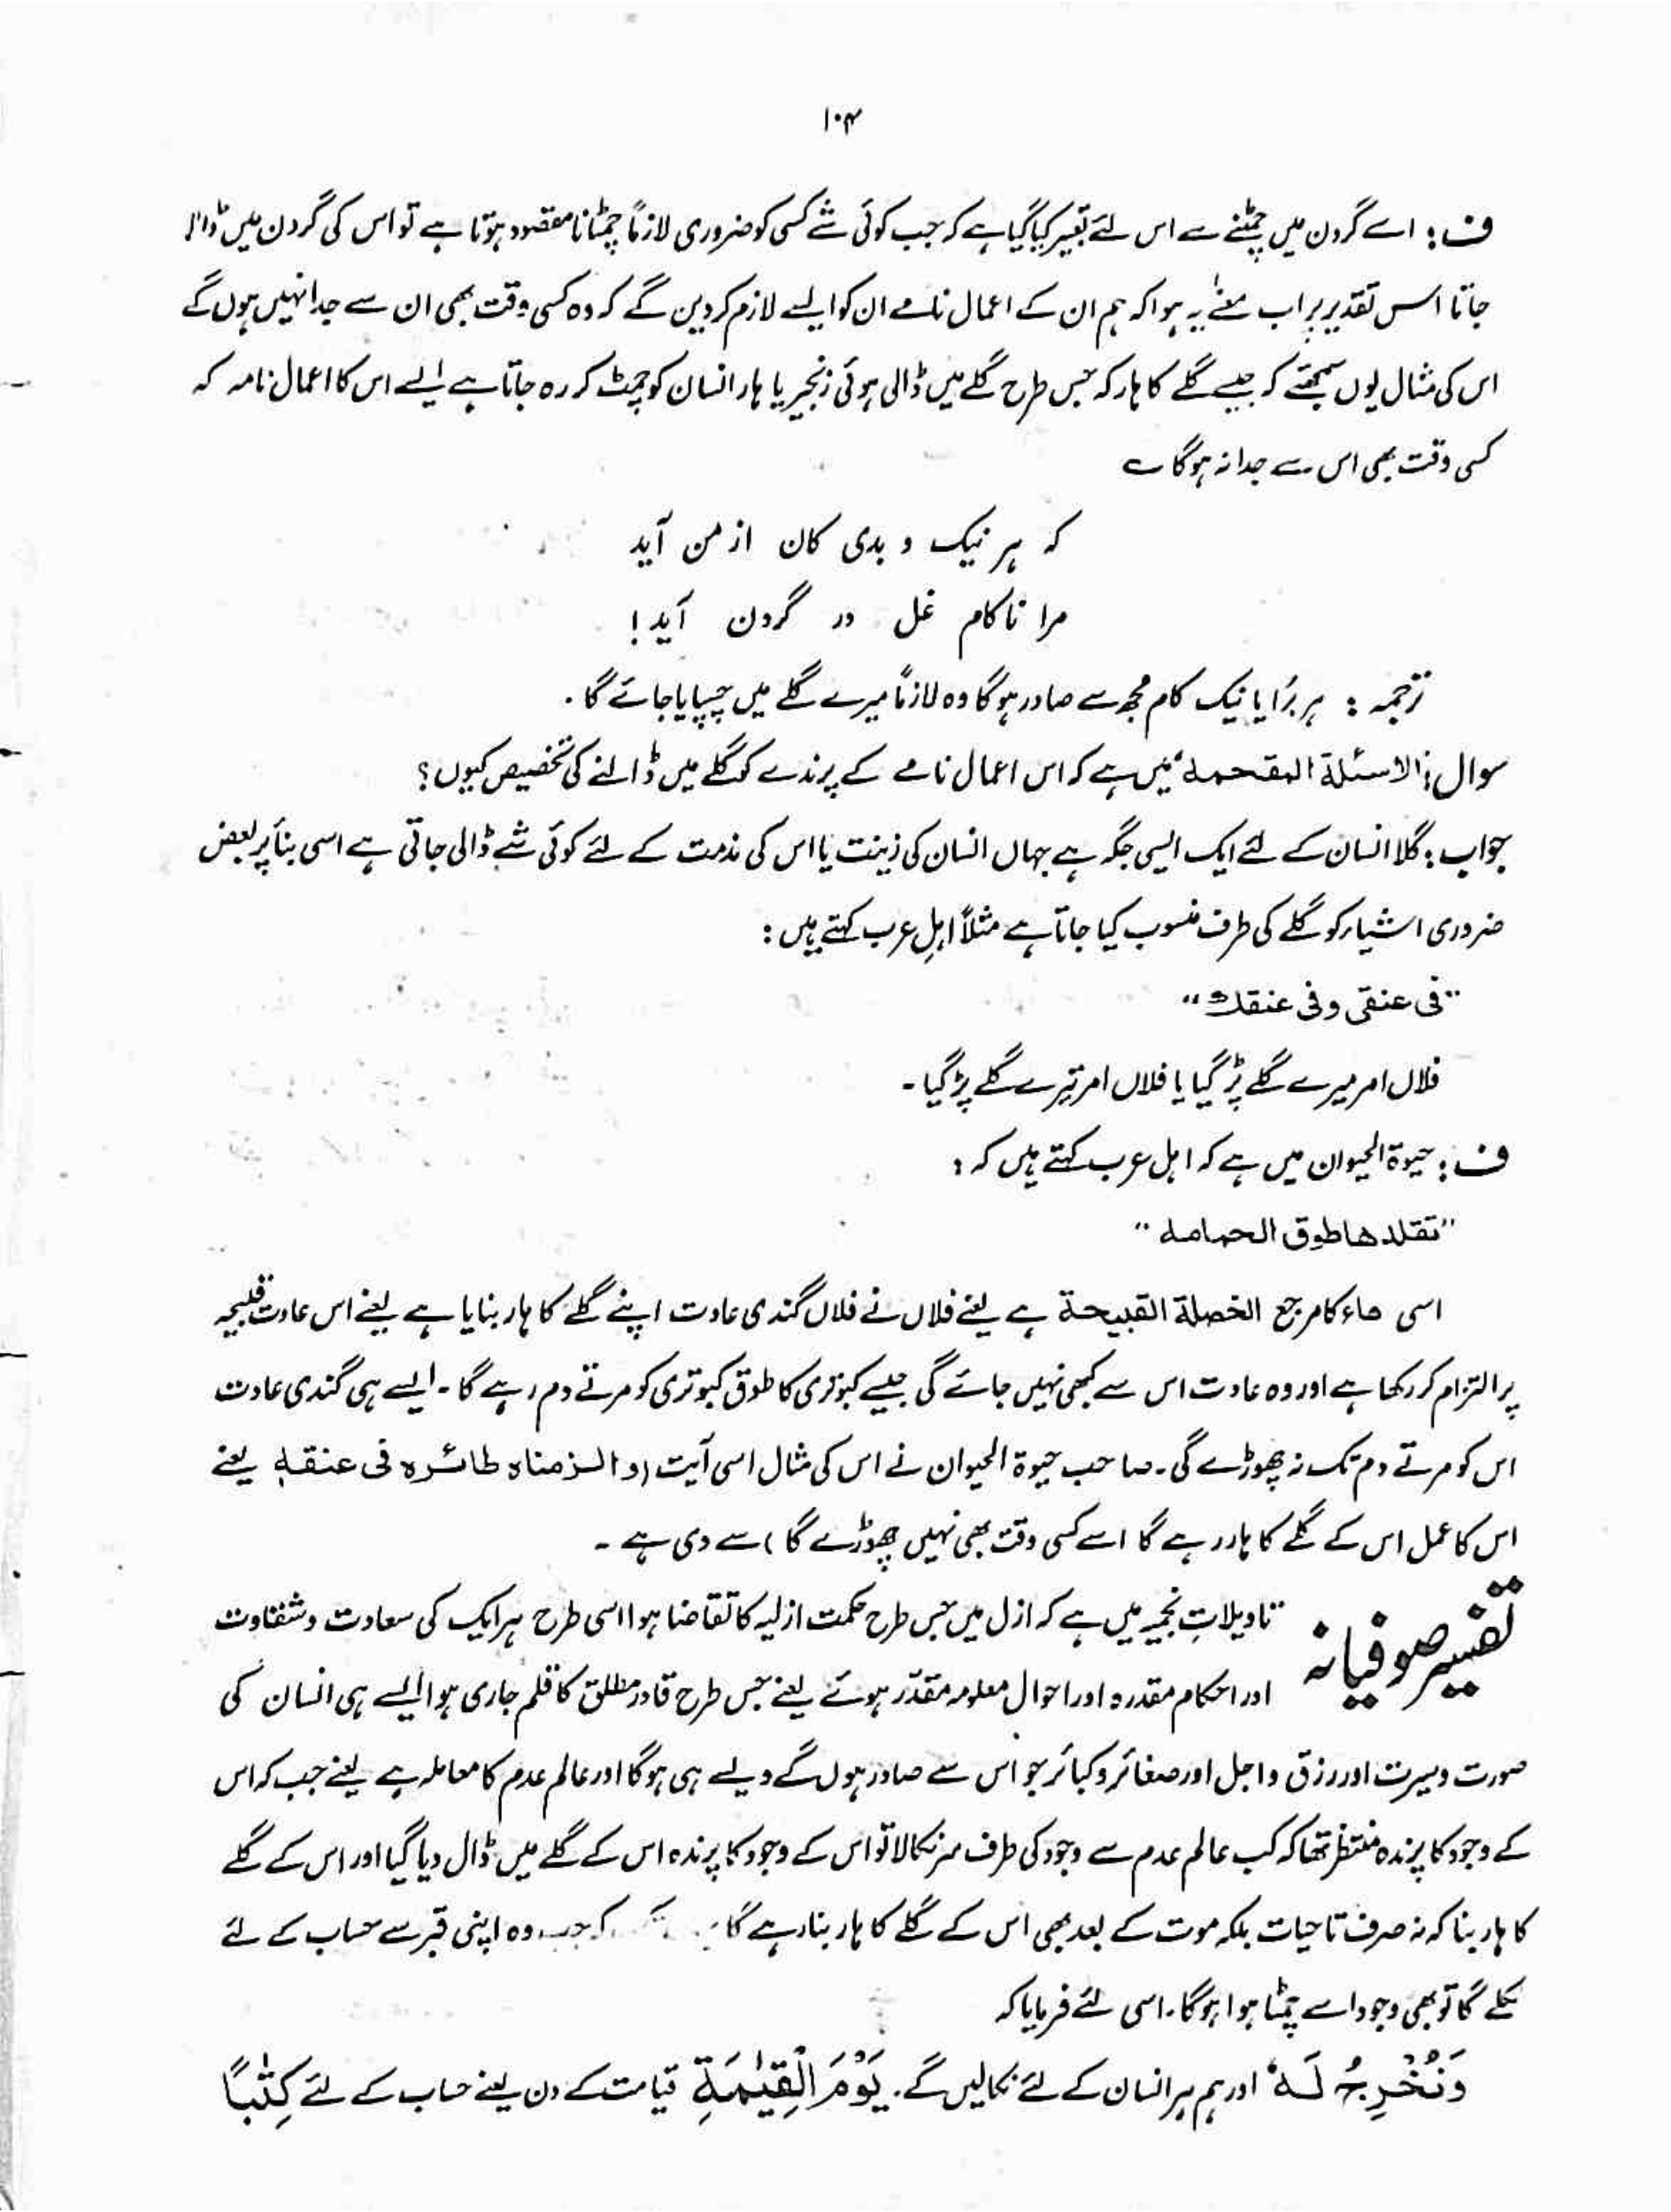 ۱۰۴
ف : اسے گردن میں چمٹنے سے اس لئے تعبیر کیا گیا ہے کہ جب کوئی شے کسی کو ضروری لازماً چمٹانا مقصود ہوتا ہے تو اس کی گردن میں ڈالا
جاتا اس تقدیر پر اب معنےٰ یہ ہوا کہ ہم ان کے اعمال نامے ان کو ایسے لازم کر دیں گے کہ وہ کسی وقت بھی ان سے جدا نہیں ہوں گے
اس کی مثال یوں سمجھئے کہ جیسے گلے کا ہار کہ جس طرح گلے میں ڈالی ہوئی زنجیر یا ہار انسان کو چمٹ کر رہ جاتا ہے ایسے اس کا اعمال نامہ کہ
کسی وقت بھی اس سے جدا نہ ہوگا ؎
کہ ہر نیک و بدی کان از من آید
مرا ناکام غل در گردن آید !
ترجمہ : ہر بُرا یا نیک کام مجھ سے صادر ہوگا وہ لازماً میرے گلے میں چپپایا جائے گا .
سوال : الاسئلة المقحمة میں ہے کہ اس اعمال نامے کے پرندے کو گلے میں ڈالنے کی تخصیص کیوں ؟
جواب : گلا انسان کے لئے ایک ایسی جگہ ہے جہاں انسان کی زینت یا اس کی مذمت کے لئے کوئی شے ڈالی جاتی ہے اسی بنأ پر بعض
ضروری اشیاء کو گلے کی طرف منسوب کیا جاتا ہے مثلاً اہلِ عرب کہتے ہیں :
"فی عنقی وفی عنقك"
فلاں امر میرے گلے پڑ گیا یا فلاں امر تیرے گلے پڑ گیا ۔
ف : حیوة الحیوان میں ہے کہ اہل عرب کہتے ہیں کہ :
"تقلدها طوق الحمامه"
اسی ھاء کا مرجع الخصلة القبيحة ہے یعنے فلاں نے فلاں گندی عادت اپنے گلے کا ہار بنایا ہے یعنے اس عادت قبیحہ
پر التزام کر رکھا ہے اور وہ عادت اس سے کبھی نہیں جائے گی جیسے کبوتری کا طوق کبوتری کو مرتے دم رہے گا ۔ ایسے ہی گندی عادت
اس کو مرتے دم تک نہ چھوڑے گی ۔ صاحب حیوة الحیوان نے اس کی مثال اسی آیت (و الزمناه طائره فی عنقه یعنے
اس کا عمل اس کے گلے کا ہار رہے گا اسے کسی وقت بھی نہیں چھوڑے گا) سے دی ہے ۔
تفسیر صوفیانہ تاویلاتِ نجمیہ میں ہے کہ ازل میں جس طرح حکمت ازلیہ کا تقاضا ہوا اسی طرح ہر ایک کی سعادت و شقاوت
اور احکام مقدرہ اور احوال معلومہ مقدّر ہوئے یعنے جس طرح قادر مطلق کا قلم جاری ہوا ایسے ہی انسان کی
صورت و سیرت اور رزق و اجل اور صغائر و کبائر جو اس سے صادر ہوں گے ویسے ہی ہوگا اور عالم عدم کا معاملہ ہے یعنے جب کہ اس
کے وجود کا پرندہ منتظر تھا کہ کب عالم عدم سے وجود کی طرف سر نکالا تو اس کے وجود کا پرندہ اس کے گلے میں ڈال دیا گیا اور اس کے گلے
کا ہار بنا کہ نہ صرف تا حیات بلکہ موت کے بعد بھی اس کے گلے کا ہار بنا رہے گا کہ جب وہ اپنی قبر سے حساب کے لئے
نکلے گا تو بھی وجود اسے چمٹا ہوا ہوگا . اسی لئے فرمایا کہ
وَنُخْرِجُ لَهٗ اور ہم ہر انسان کے لئے نکالیں گے . يَوْمَ الْقِيٰمَةِ قیامت کے دن یعنے حساب کے لئے كِتٰبًا